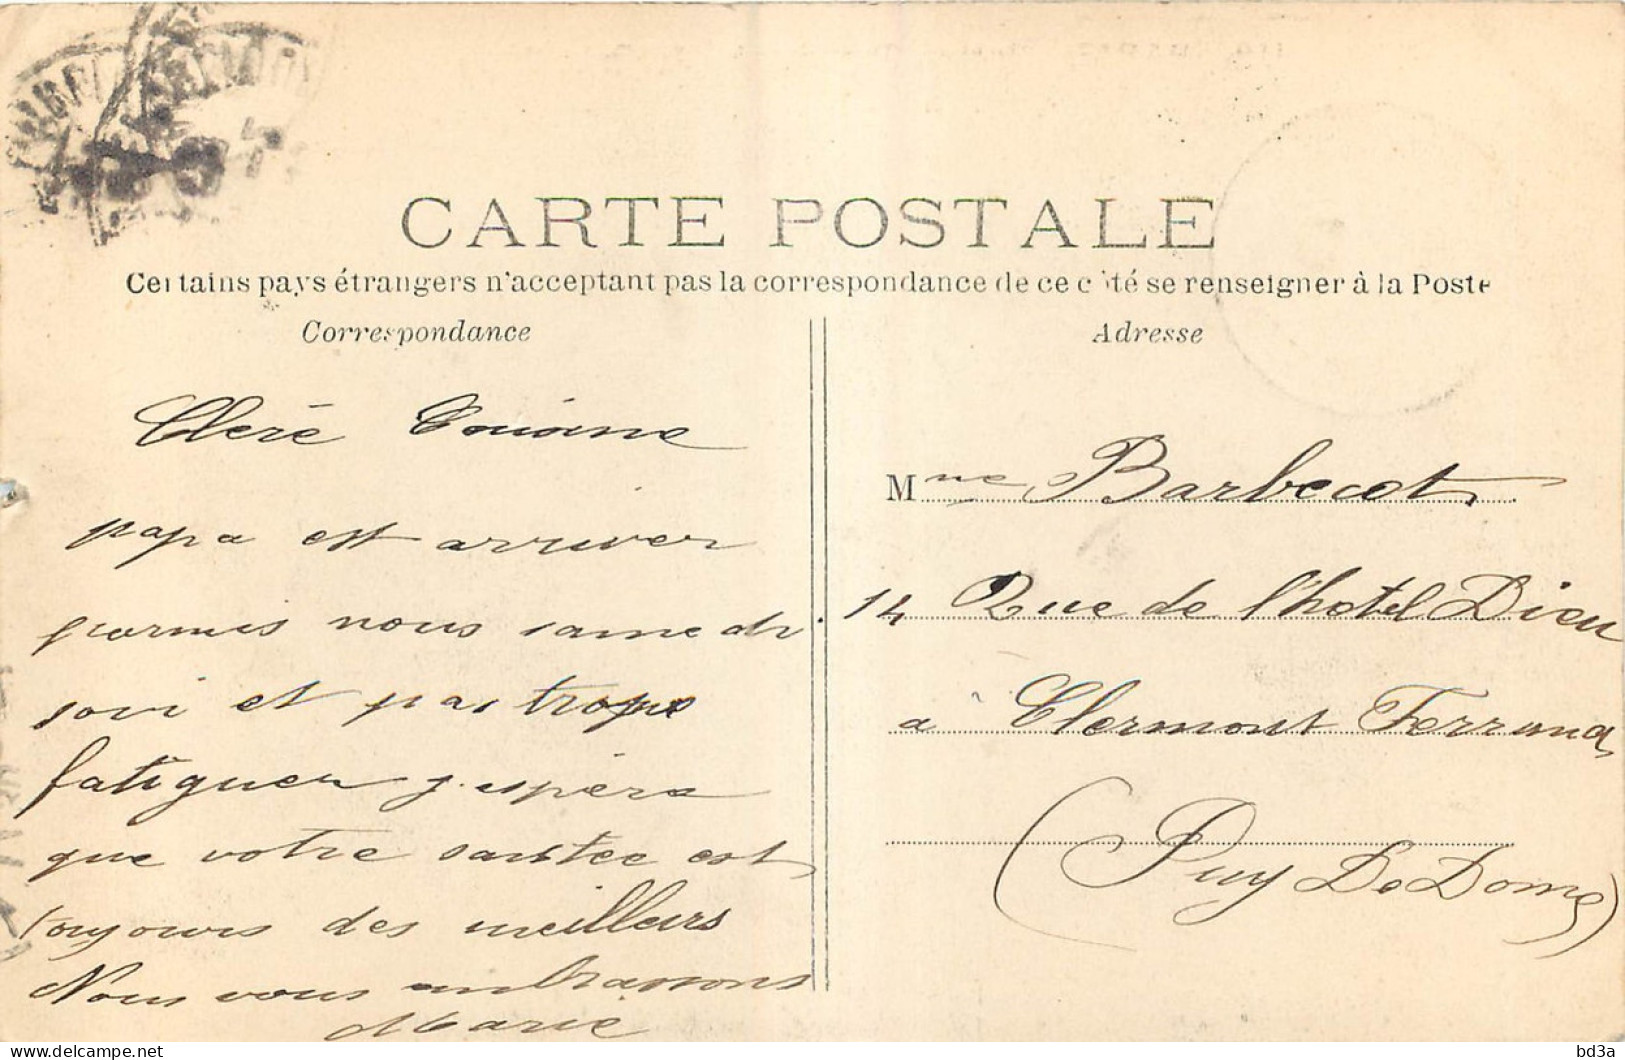 CARTE POSTALE
Certains pays étrangers n'acceptant pas la correspondance de ce côté se renseigner à la Poste
Correspondance
Adresse
Cleré
papa est arriver
parmis nous samedi
soir et pas trope
fatiguer j'espère
que votre santee est
toujours des meilleurs
Nous vous embrassons
Marie
Mme Barbecot
14 Rue de l'hotel Dieu
a Clermont Ferrand
(Puy De Dome)
bd3a